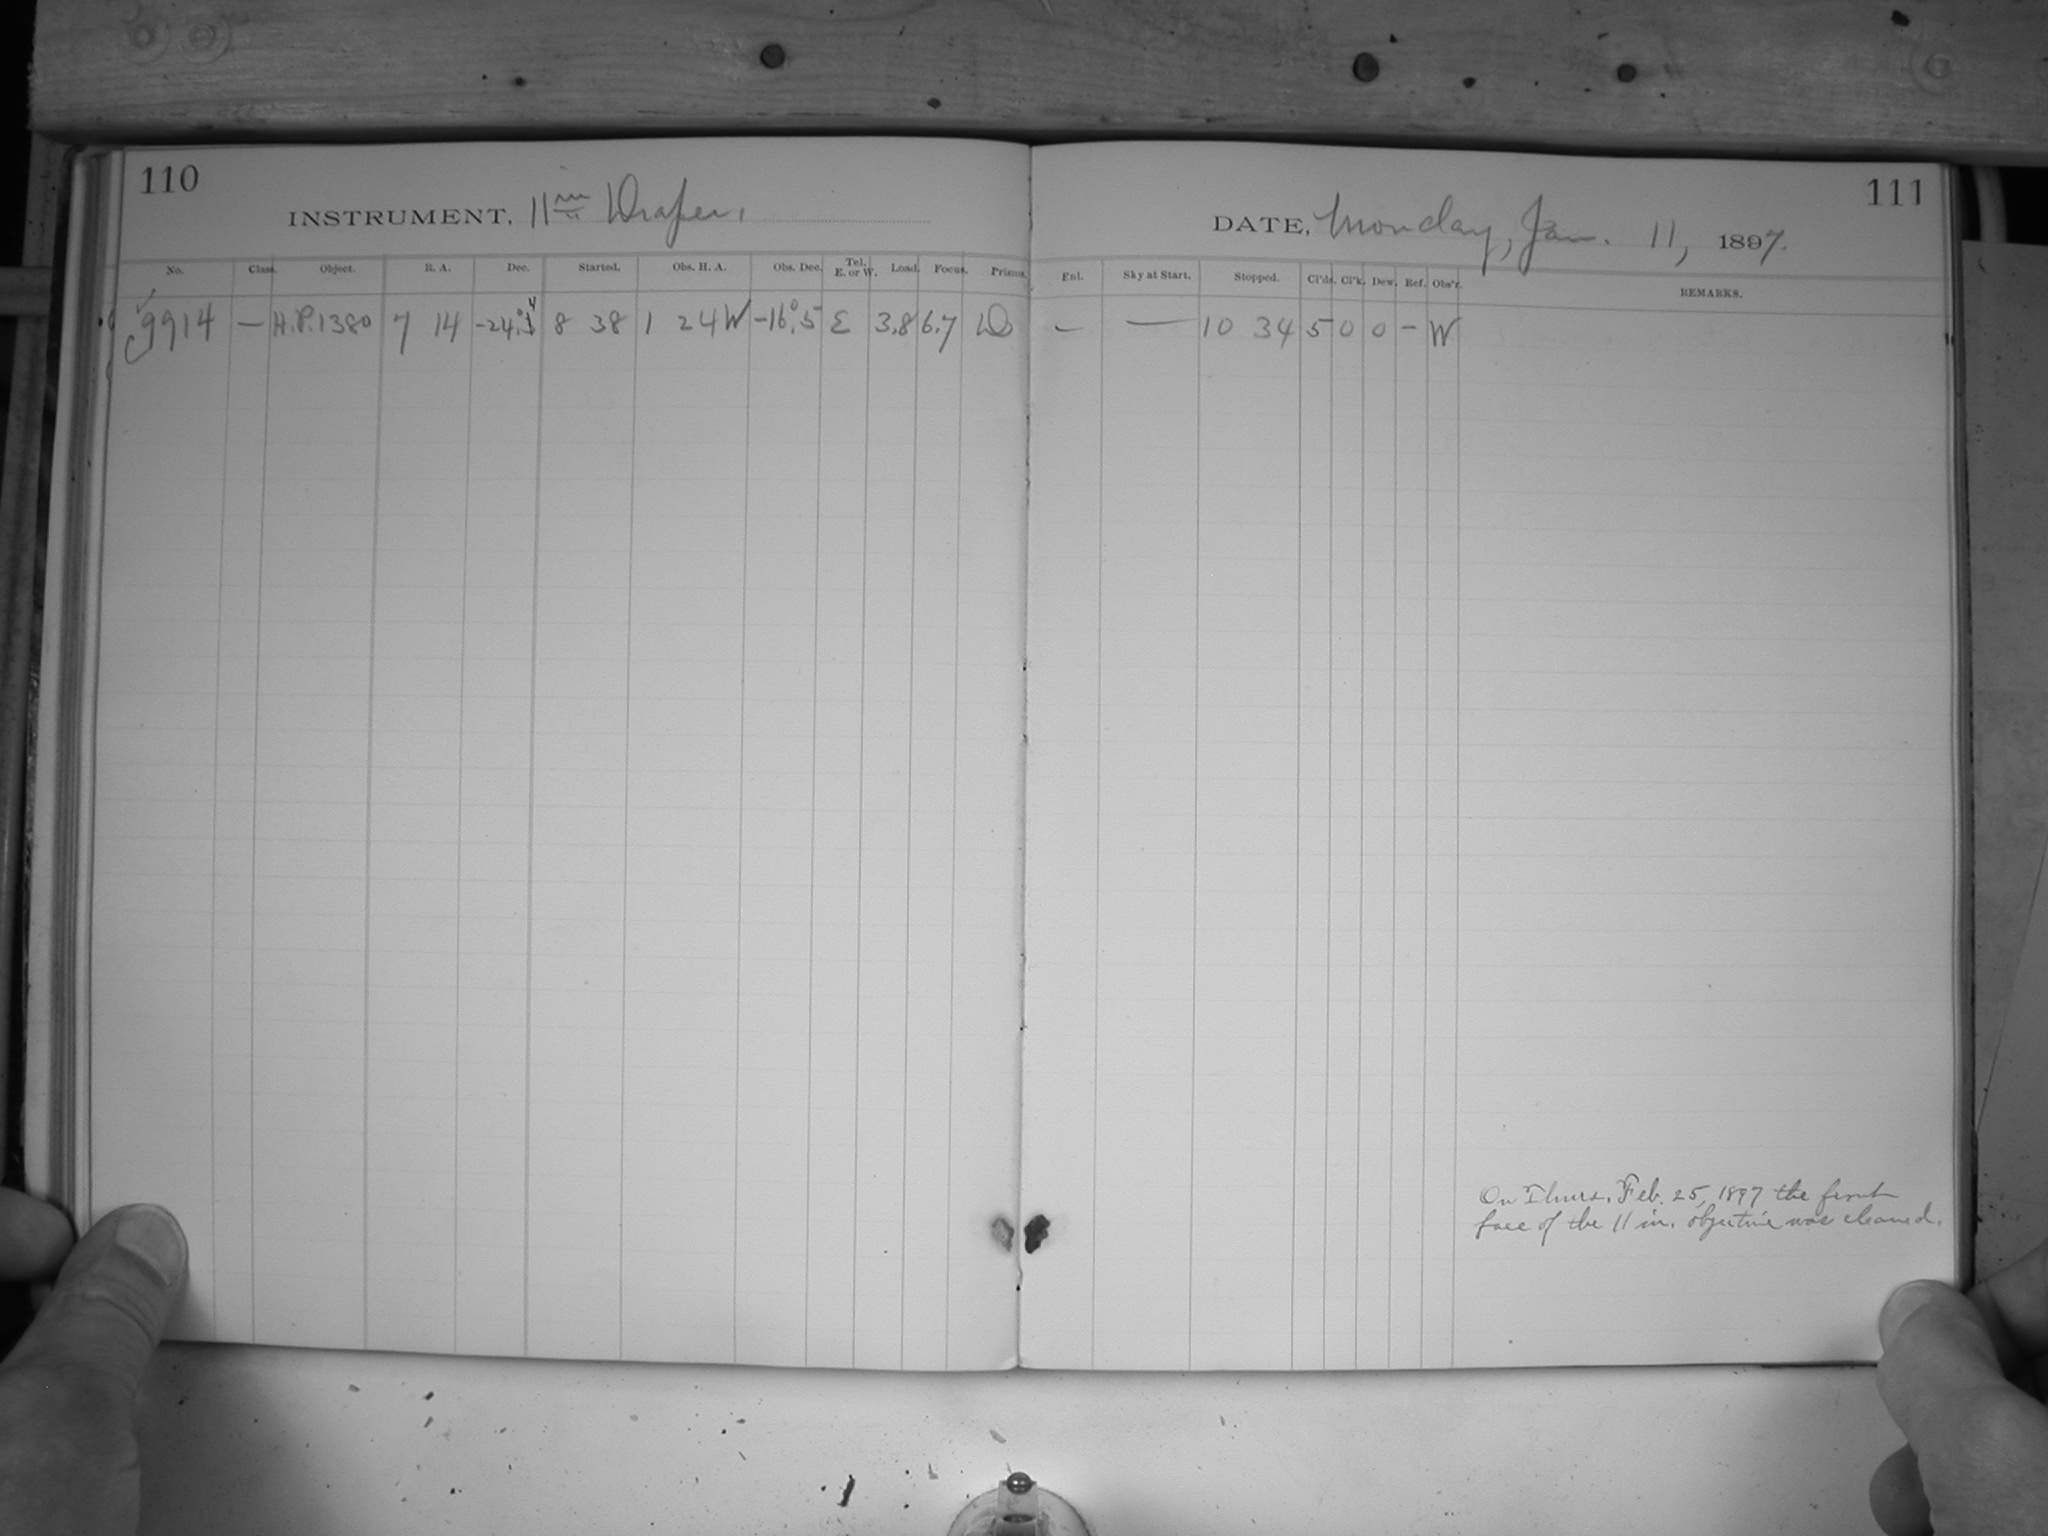 110
INSTRUMENT, 11 in Draper.
No. Class. Object. R. A. Dec. Started. Obs. H. A. Obs. Dec. Tel. E. or W. Load. Focus. Prisms.
9914 — H.P. 1380 7 14 -24°.4 8 38 1 24 W -16°.5 E 3.8 6.7
111
DATE, Monday, Jan. 11, 1897.
Enl. Sky at Start. Stopped. Cl'ds. Cl'k. Dew. Ref. Obs'r. REMARKS.
— — 10 34 5 0 0 — W
On Thurs. Feb. 25, 1897 the front
face of the 11 in. objective was cleaned.